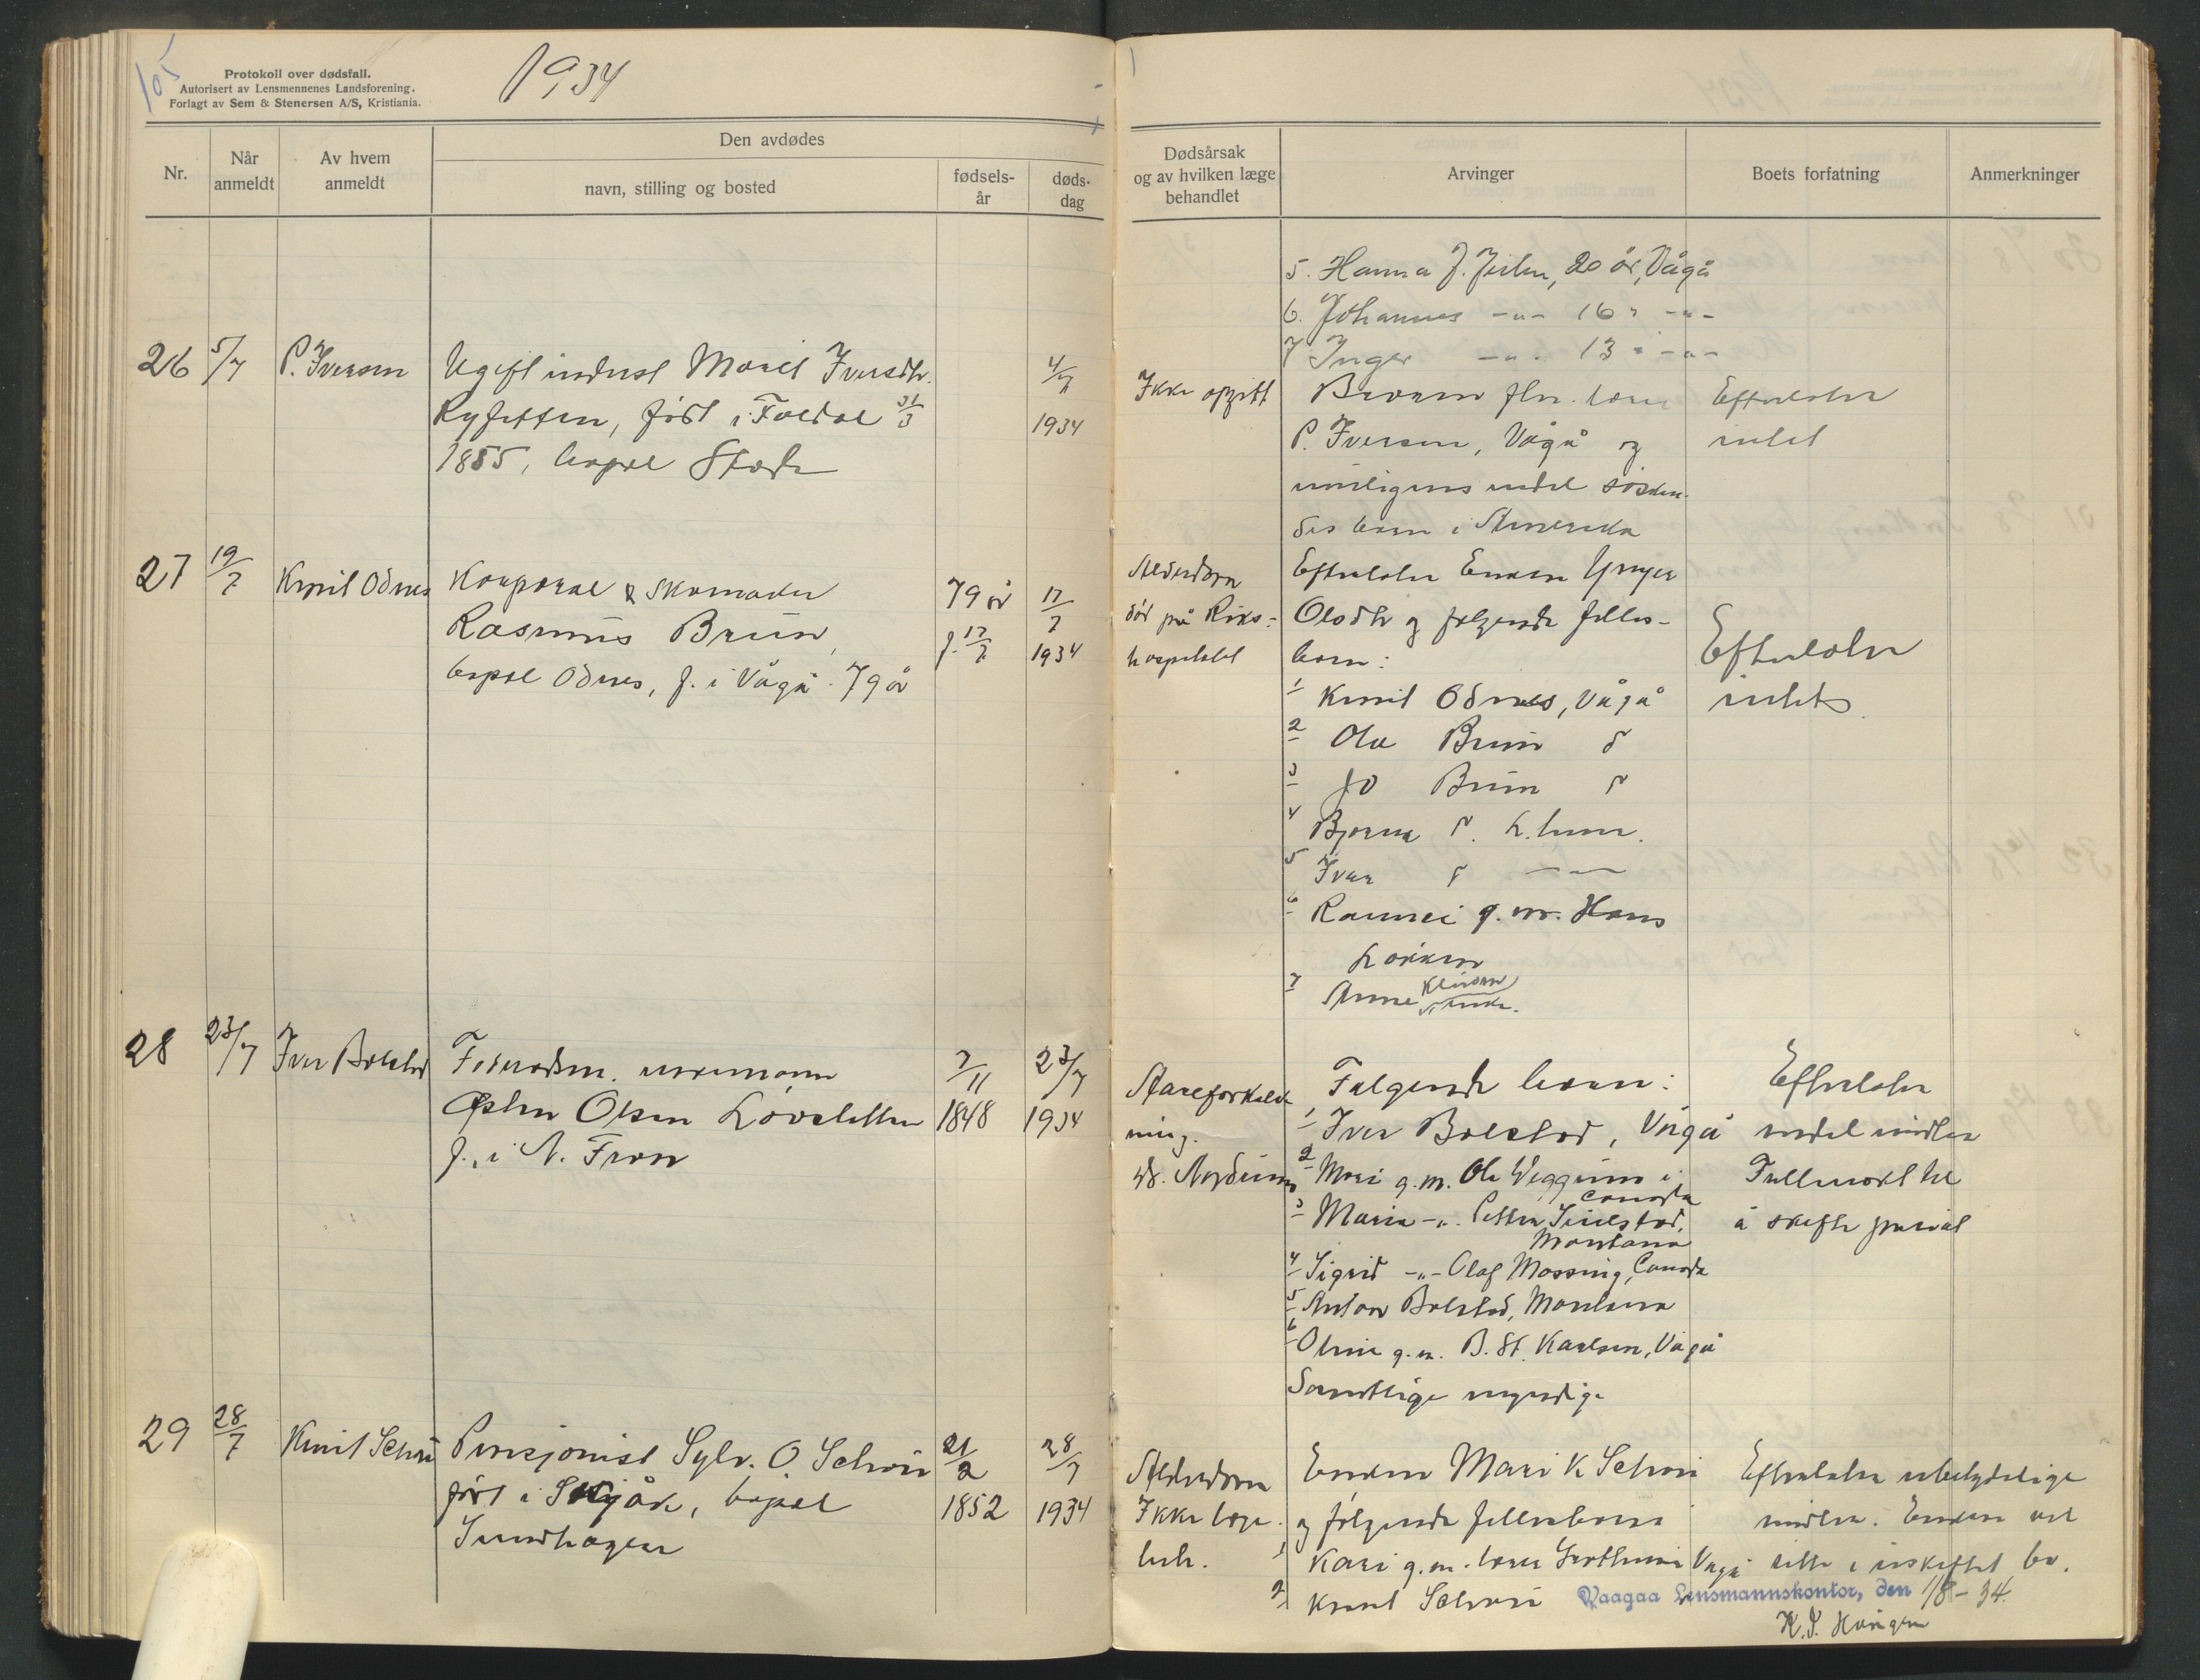 105
Protokoll over dødsfall.
Autorisert av Lensmennenes Landsforening.
Forlagt av Sem & Stenersen A/S, Kristiania.
1934
Nr.
Når anmeldt
Av hvem anmeldt
Den avdødes
navn, stilling og bosted
fødsels-år
døds-dag
Dødsårsak og av hvilken læge behandlet
Arvinger
Boets forfatning
Anmerkninger
5. Hanna J. 20 år, Vågå
6. Johannes -"- 16 " -"-
7 Inger -"- 13 " -"-
26 5/7 P. Iversen
Ugift inderst Marit Iversdtr.
født i Foldal 31/3
1855, bopæl
4/7
1934
Ikke opgitt
P. Iversen, Vågå og
barn i Amerika
Efterlater
intet
27 19/7 Knut Odnes
Korporal & skomaker
Rasmus Bruun,
bopæl Odnes, f. i Vågå 79 år
79 år
f. 17/7
17/7
1934
Alderdom
død på Riks-
hospitalet
Efterlater Enken Yngjer
Olsdtr og følgende felles-
barn:
1 Knut Odnes, Vågå
2 Ola Bruun d
3 Jo Bruun d
4 Bjarne d. L.hmr.
5 Ivar d -"-
6 Rannei g.m. Hans
Løkken
7 Anne
Efterlater
intet
28 23/7 Iver Bolstad
Føderådsm. enkemann
Østen Olsen Løvsletten
f. i N. Fron
7/11
1848
23/7
1934
Aareforkalk-
ning.
dr. Nordrum
Følgende barn:
1 Iver Bolstad, Vågå
2 Mari g.m. Ole Veggum i
Canada
3 Maria -"- Petter
Montana
4 Sigrid -"- Olaf Mossing, Canada
5 Anton Bolstad, Montana
6 Oline g.m. B. St. Karlsen, Vågå
Samtlige myndige
Efterlater
endel midler
Fullmakt til
å skifte privat
29 28/7 Knut Schøri
Pensjonist Sylv. O. Schøri
født i Skjåk, bopæl
Sundhagen
21/2
1852
28/7
1934
Alderdom
Ikke læge-
beh.
Enken Mari K Schøri
og følgende fellesbarn
1 Kari g.m. Vågå
2 Knut Schøri
Efterlater ubetydelige
midler. Enken vil
sitte i uskiftet bo.
Vaagaa Lensmannskontor, den 1/8 - 34.